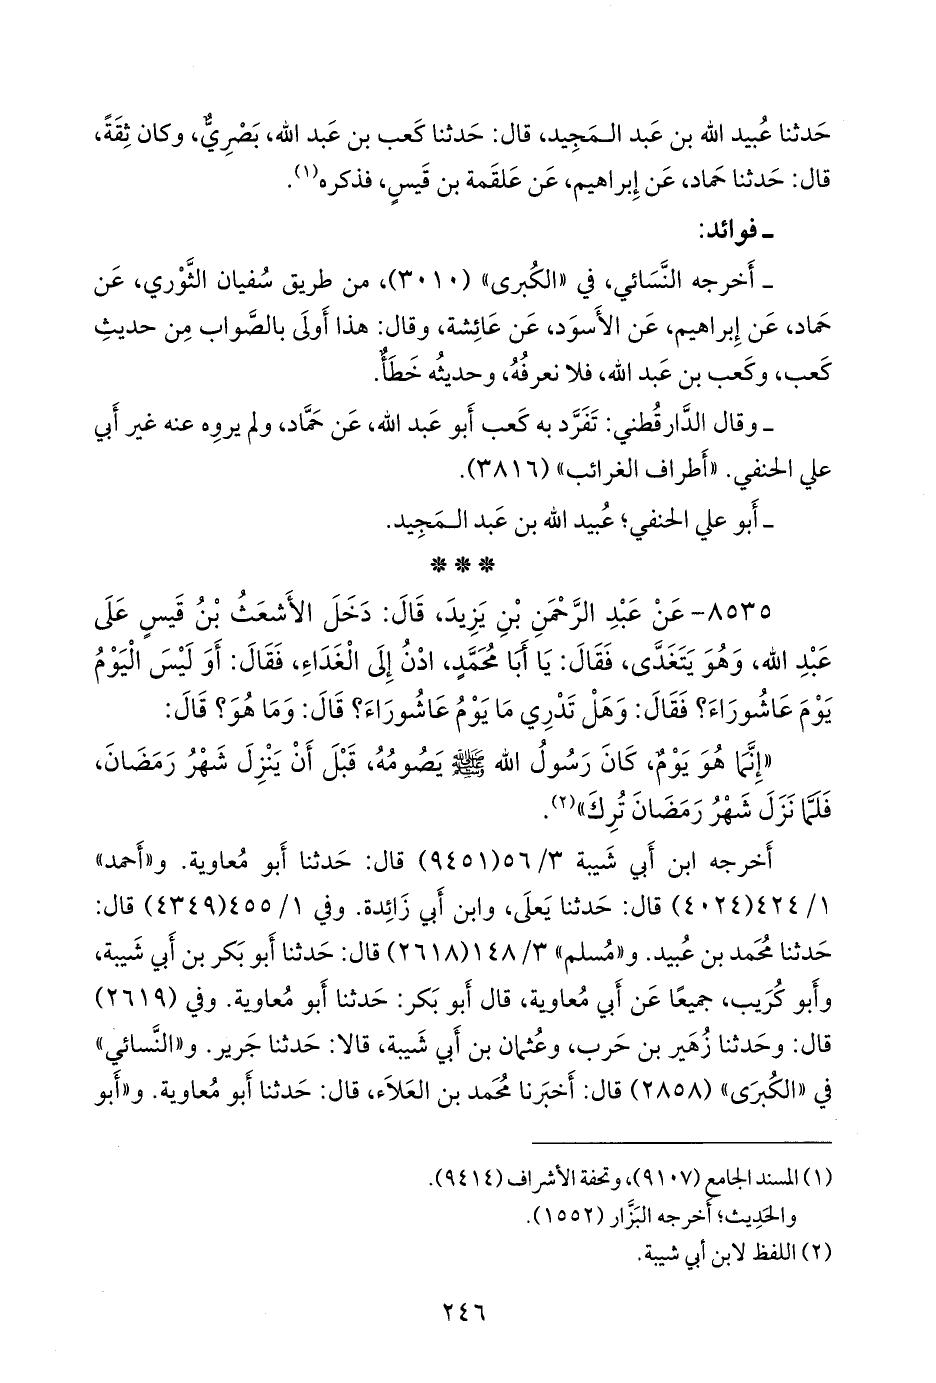 حَدثنا عُبيد الله بن عَبد الـمَجِيد، قال: حَدثنا كَعب بن عَبد الله، بَصْرِيٌّ، وكان ثِقَةً،
قال: حَدثنا حَماد، عَن إِبراهيم، عَن عَلقمة بن قَيسٍ، فذكره(١).
ـ فوائد:
ـ أَخرجه النَّسَائي، في «الكُبرى» (٣٠١٠)، من طريق سُفيان الثَّوْري، عَن
حَماد، عَن إِبراهيم، عَن الأَسوَد، عَن عَائِشة، وقال: هذا أَولَى بالصَّواب مِن حديثِ
كَعب، وكَعب بن عَبد الله، فلا نعرفُهُ، وحديثُه خَطَأٌ.
ـ وقال الدَّارقُطني: تَفَرَّد به كَعب أَبو عَبد الله، عَن حَمَّاد، ولم يروِه عنه غير أَبي
علي الحنفي. «أَطراف الغرائب» (٣٨١٦).
ـ أَبو علي الحنفي؛ عُبيد الله بن عَبد الـمَجِيد.
* * *
٨٥٣٥- عَنْ عَبْدِ الرَّحْمَنِ بْنِ يَزِيدَ، قَالَ: دَخَلَ الأَشعَثُ بْنُ قَيسٍ عَلَى
عَبْدِ الله، وَهُوَ يَتَغَدَّى، فَقَالَ: يَا أَبَا مُحَمَّدٍ، ادْنُ إِلَى الْغَدَاءِ، فَقَالَ: أَوَ لَيْسَ الْيَوْمُ
يَوْمَ عَاشُورَاءَ؟ فَقَالَ: وَهَلْ تَدْرِي مَا يَوْمُ عَاشُورَاءَ؟ قَالَ: وَمَا هُوَ؟ قَالَ:
«إِنَّمَا هُوَ يَوْمٌ، كَانَ رَسُولُ الله ﷺ يَصُومُهُ، قَبْلَ أَنْ يَنْزِلَ شَهْرُ رَمَضَانَ،
فَلَمَّا نَزَلَ شَهْرُ رَمَضَانَ تُرِكَ»(٢).
أَخرجه ابن أَبي شَيبة ٣/ ٥٦(٩٤٥١) قال: حَدثنا أَبو مُعاوية. و«أَحمد»
١/ ٤٢٤(٤٠٢٤) قال: حَدثنا يَعلَى، وابن أَبي زَائِدة. وفي ١/ ٤٥٥(٤٣٤٩) قال:
حَدثنا مُحَمد بن عُبيد. و«مُسلم» ٣/ ١٤٨(٢٦١٨) قال: حَدثنا أَبو بَكر بن أَبي شَيبة،
وأَبو كُرَيب، جميعًا عَن أَبي مُعاوية، قال أَبو بَكر: حَدثنا أَبو مُعاوية. وفي (٢٦١٩)
قال: وحَدثنا زُهَير بن حَرب، وعُثمان بن أَبي شَيبة، قالا: حَدثنا جَرير. و«النَّسائي»
في «الكُبرَى» (٢٨٥٨) قال: أَخبَرنا مُحَمد بن العَلاَء، قال: حَدثنا أَبو مُعاوية. و«أَبو
(١) المسند الجامع (٩١٠٧)، وتحفة الأشراف (٩٤١٤).
والحَدِيث؛ أَخرجه البَزَّار (١٥٥٢).
(٢) اللفظ لابن أبي شيبة.
٢٤٦